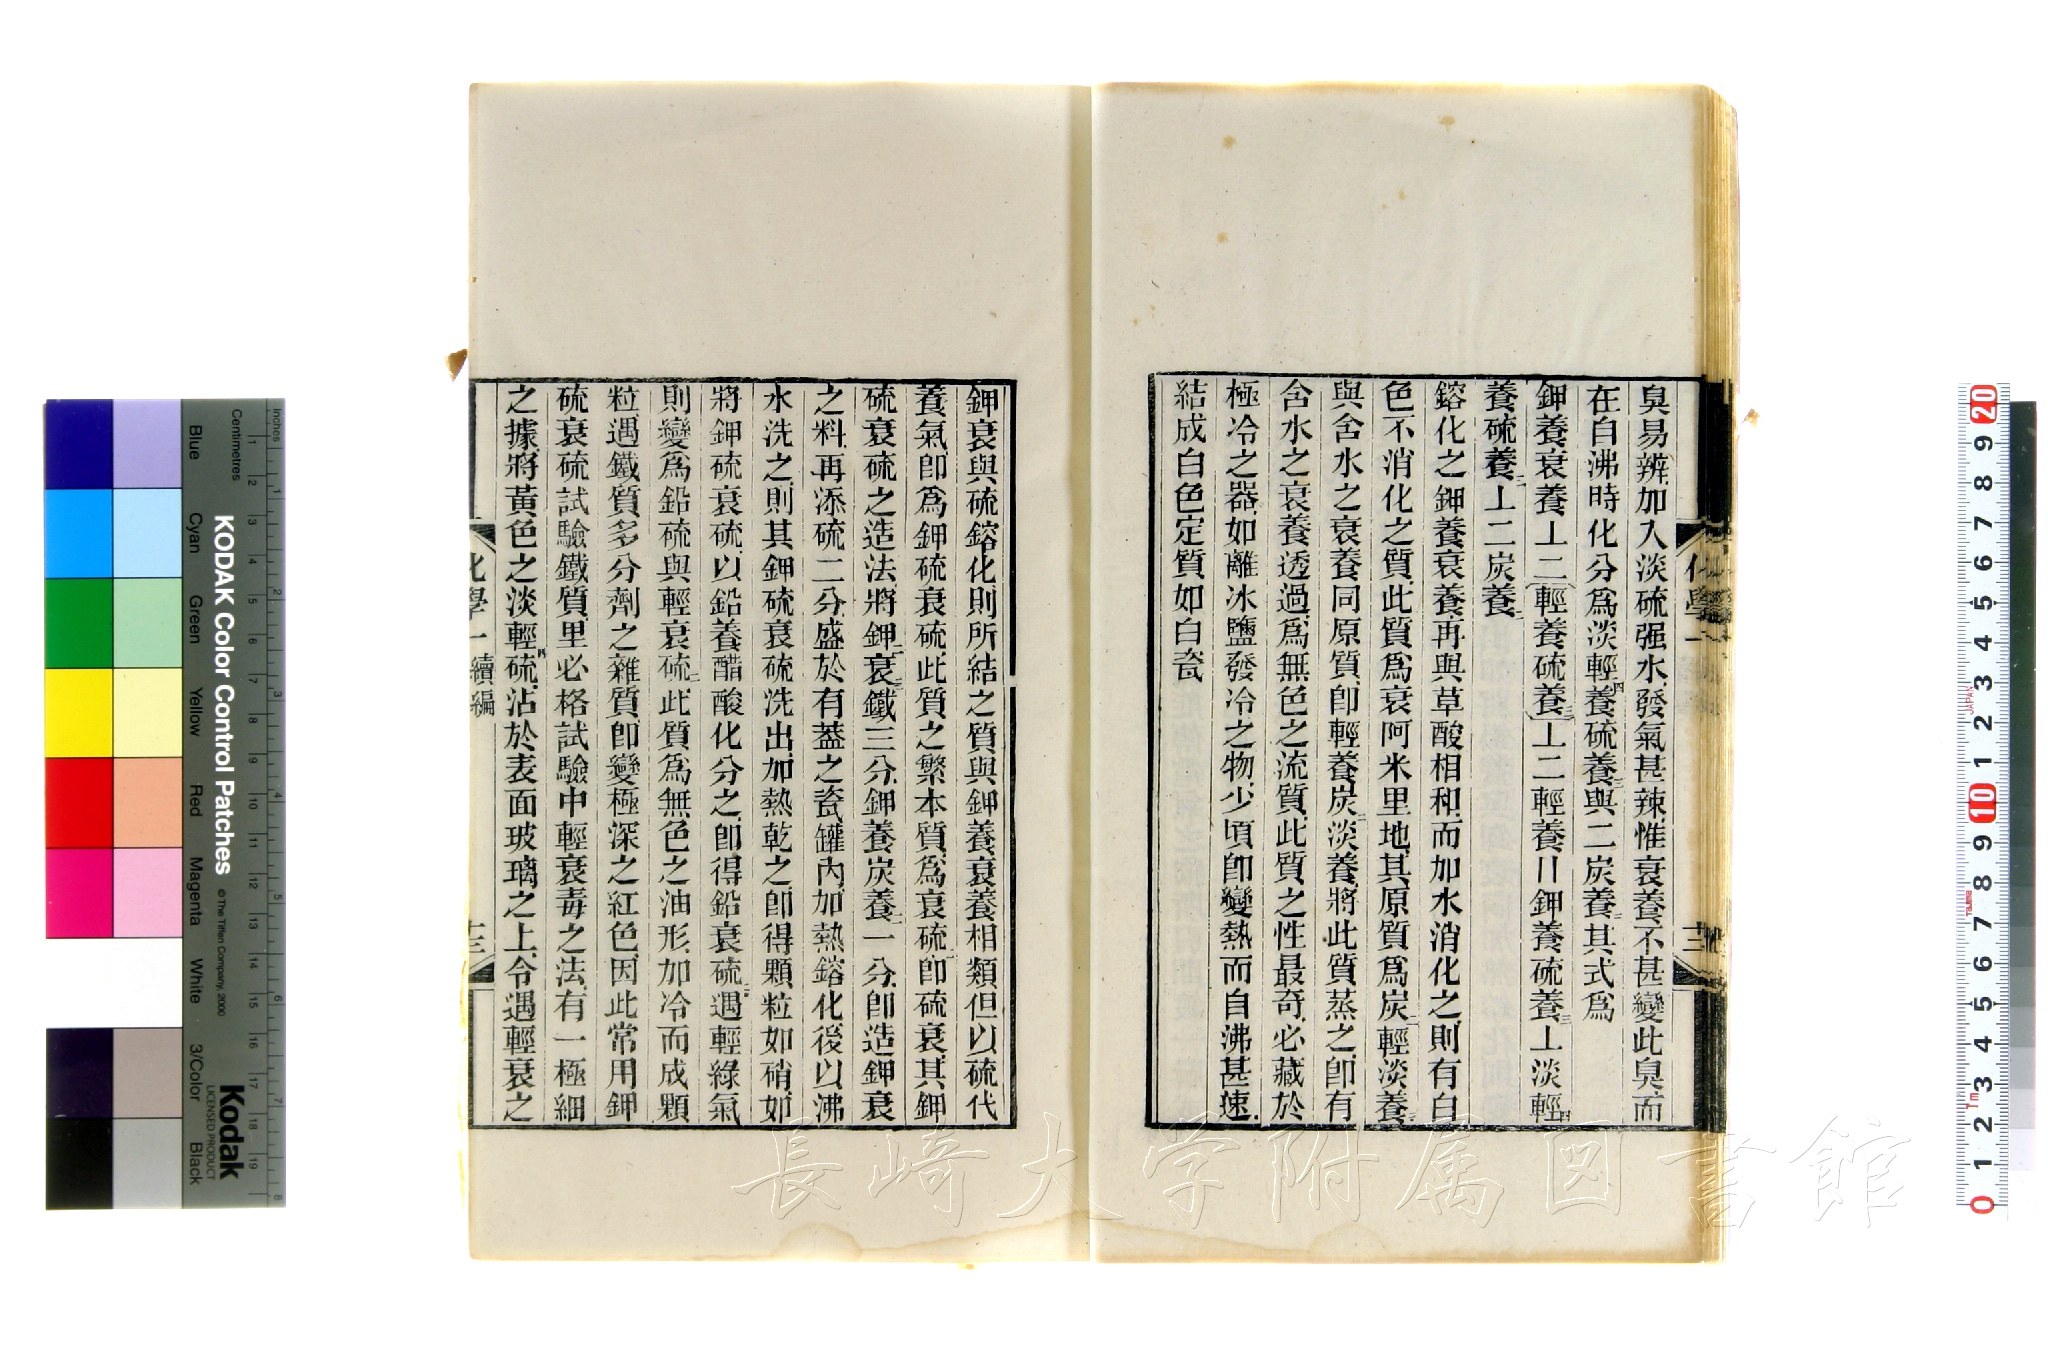 臭易辨加入淡硫强水發氣甚辣惟衰養不甚變此臭而
在自沸時化分爲淡輕四養硫養三與二炭養二其式爲
鉀養衰養⊥二(輕養硫養三)⊥二輕養〢鉀養硫養三⊥淡輕四
養硫養三⊥二炭養二
鎔化之鉀養衰養再與草酸相和而加水消化之則有白
色不消化之質此質爲衰阿米里地其原質爲炭二輕淡養二
與含水之衰養同原質卽輕養炭二淡養將此質蒸之卽有
含水之衰養透過爲無色之流質此質之性最奇必藏於
極冷之器如離冰鹽發冷之物少頃卽變熱而自沸甚速
結成白色定質如白瓷
化學一
鉀衰與硫鎔化則所結之質與鉀養衰養相類但以硫代
養氣卽爲鉀硫衰硫此質之繁本質爲衰硫二卽硫衰其鉀
硫衰硫之造法將鉀二衰三鐵三分鉀養炭養二一分卽造鉀衰
之料再添硫二分盛於有蓋之瓷罐內加熱鎔化後以沸
水洗之則其鉀硫衰硫洗出加熱乾之卽得顆粒如硝如
將鉀硫衰硫以鉛養醋酸化分之卽得鉛衰硫二遇輕綠氣
則變爲鉛硫與輕衰硫二此質爲無色之油形加冷而成顆
粒遇鐵質多分劑之雜質卽變極深之紅色因此常用鉀
硫衰硫試驗鐵質里必格試驗中輕衰毒之法有一極細
之據將黃色之淡輕四硫沾於表面玻璃之上令遇輕衰之
化學一 續編
十三
KODAK Color Control Patches
© The Tiffen Company, 2000
Kodak
LICENSED PRODUCT
Inches
Centimetres
Blue
Cyan
Green
Yellow
Red
Magenta
White
3/Color
Black
長崎大学附属図書館